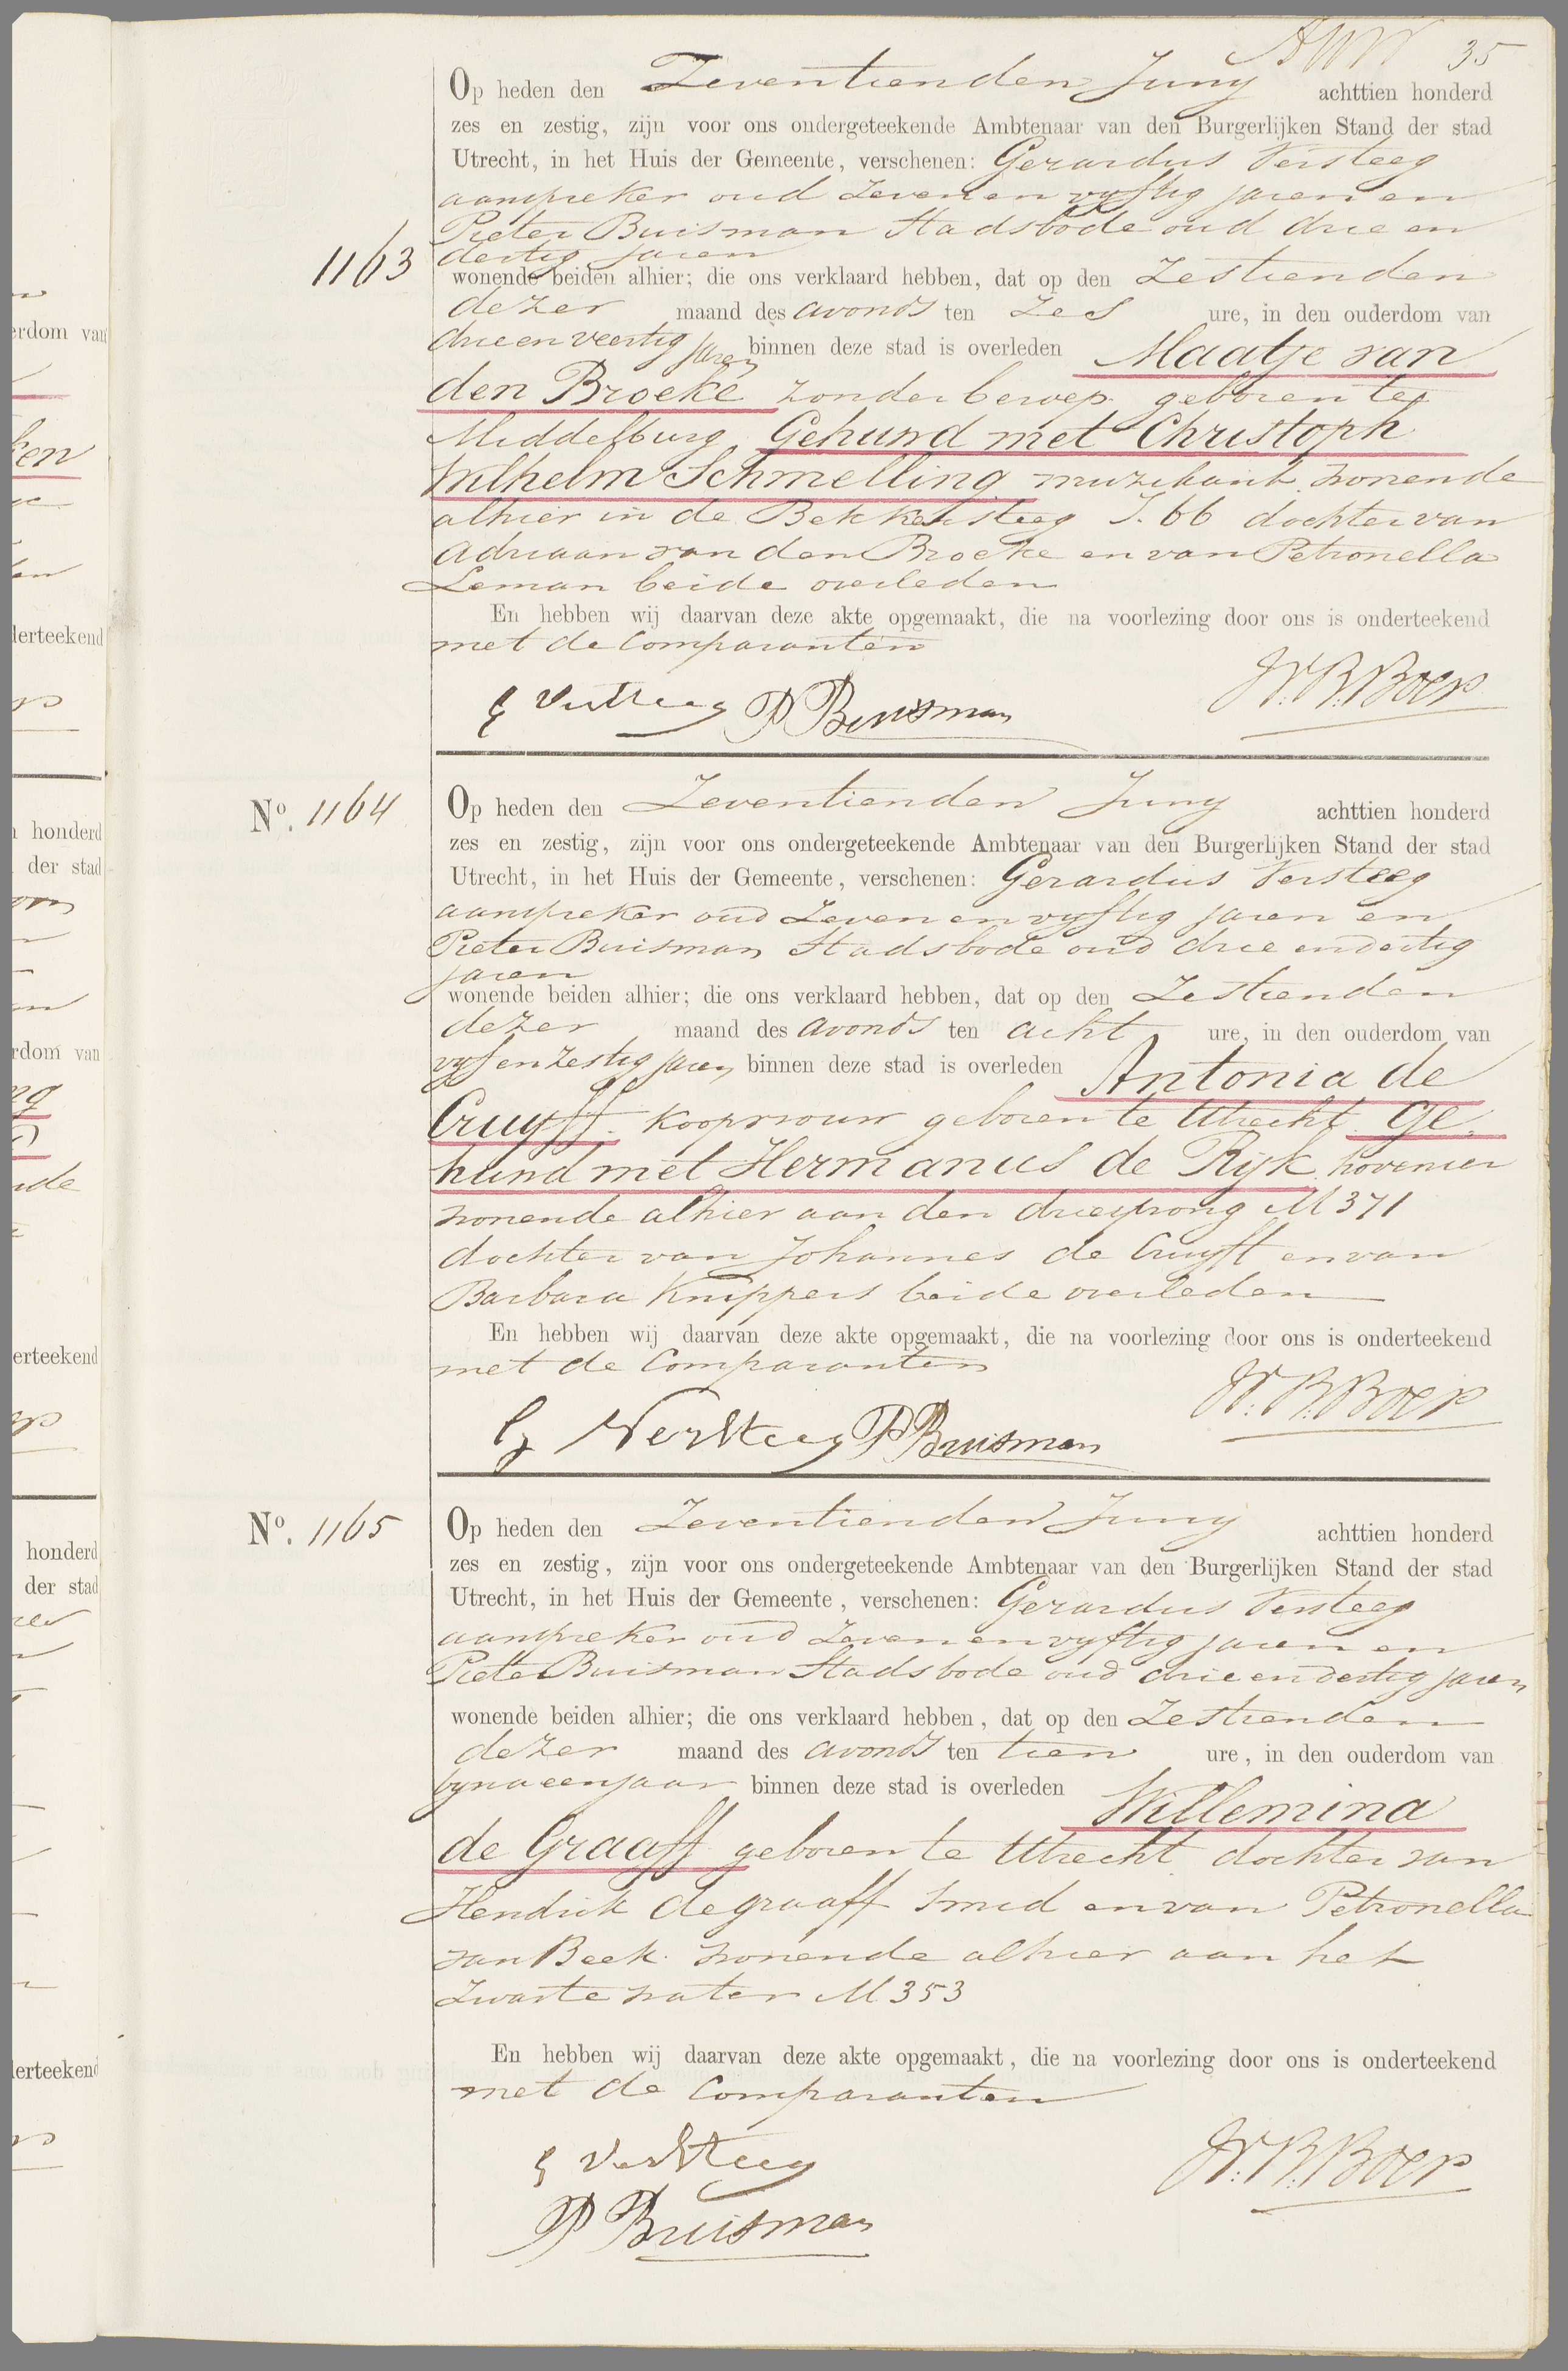 35
Op heden den Zeventienden Juny achttien honderd
zes en zestig, zijn voor ons ondergeteekende Ambtenaar van den Burgerlijken Stand der stad
Utrecht, in het Huis der Gemeente, verschenen: Gerardus Versteeg
aanspreker oud zeven en vyftig jaren en
Pieter Buisman Stadsbode oud drie en
dertig jaren
1163
wonende beiden alhier; die ons verklaard hebben, dat op den Zestienden
dezer maand des avonds ten zes ure, in den ouderdom van
drie en veertig jaren binnen deze stad is overleden Maatje van
den Broeke zonder beroep geboren te
Middelburg, Gehuwd met Christoph
Wilhelm Schmelling muzikant wonende
alhier in de Bekkersteeg J. 66 dochter van
Adriaan van den Broeke en van Petronella
Leman beide overleden
En hebben wij daarvan deze akte opgemaakt, die na voorlezing door ons is onderteekend
met de Comparanten
G Versteeg P Buisman W. B. Boer
No. 1164
Op heden den Zeventienden Juny achttien honderd
zes en zestig, zijn voor ons ondergeteekende Ambtenaar van den Burgerlijken Stand der stad
Utrecht, in het Huis der Gemeente, verschenen: Gerardus Versteeg
aanspreker oud zeven en vyftig jaren en
Pieter Buisman Stadsbode oud drie en dertig
jaren
wonende beiden alhier; die ons verklaard hebben, dat op den Zestienden
dezer maand des avonds ten acht ure, in den ouderdom van
vyf en zestig jaren binnen deze stad is overleden Antonia de
Cruyff. koopvrouw geboren te Utrecht. Ge-
huwd met Hermanus de Ryk hovenier
wonende alhier aan den driesprong M 371
dochter van Johannes de Cruyff en van
Barbara Knippers beide overleden
En hebben wij daarvan deze akte opgemaakt, die na voorlezing door ons is onderteekend
met de Comparanten
G Versteeg P Buisman W. B. Boer
No. 1165
Op heden den Zeventienden Juny achttien honderd
zes en zestig, zijn voor ons ondergeteekende Ambtenaar van den Burgerlijken Stand der stad
Utrecht, in het Huis der Gemeente, verschenen: Gerardus Versteeg
aanspreker oud zeven en vyftig jaren en
Pieter Buisman Stadsbode oud drie en dertig jaren
wonende beiden alhier; die ons verklaard hebben, dat op den Zestienden
dezer maand des avonds ten tien ure, in den ouderdom van
byna een jaar binnen deze stad is overleden Willemina
de Graaff geboren te Utrecht dochter van
Hendrik de Graaff Smid en van Petronella
van Beek. wonende alhier aan het
Zwarte water M 353
En hebben wij daarvan deze akte opgemaakt, die na voorlezing door ons is onderteekend
met de Comparanten
G Versteeg
P Buisman
W. B. Boer